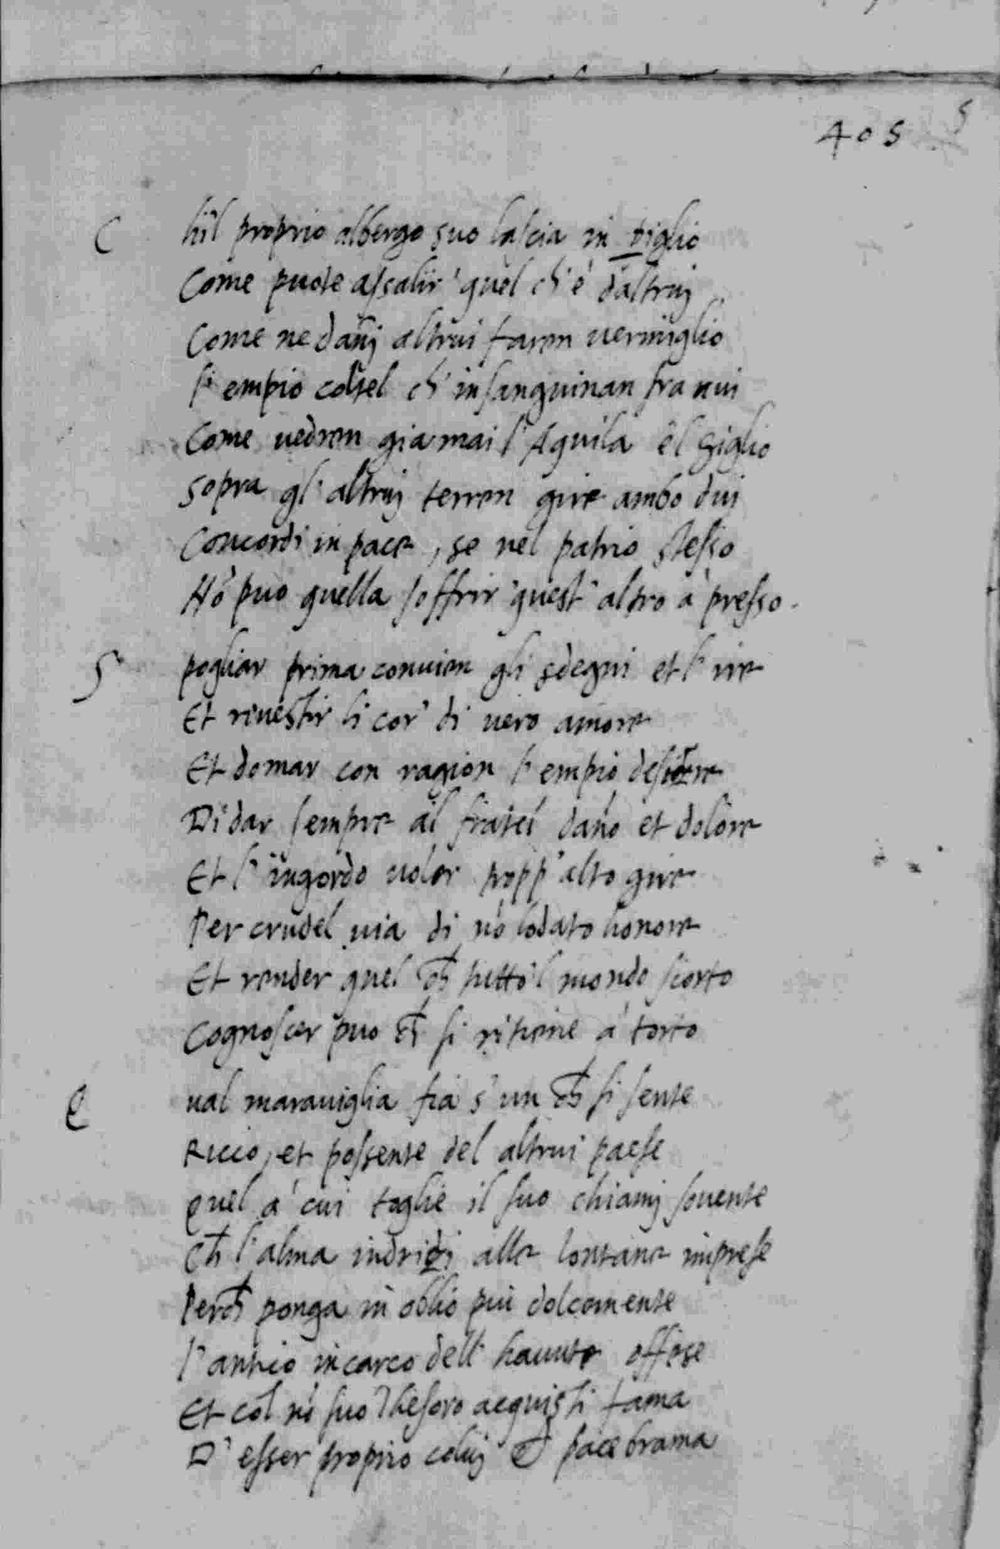 405
C hi'l proprio albergo suo lascia in piglio
Come puote assalir' quel ch'è d'altrui
Come ne dañi altrui farem vermiglio
l'empio coltel ch'insanguinan fra nui
Come vedrem giamai l'Aquila e'l Giglio
Sopra gl'altrui terren gire ambo dui
Concordi in pace, se nel patrio stesso
Nõ può quella soffrir quest'altro à presso.
S pogliar prima convien gli sdegni et l'ire
Et rivestir li cor' di vero amore
Et domar con ragion l'empio desire
Di dar sempre al fratel dañо et dolore
Et l'ingordo voler tropp'alto gire
Per crudel via di nõ lodato honore
Et render quel ch̃ tutto'l mondo scorto
Cognoscer può ch̃ si ritiene à torto
Q ual maraviglia fia s'un ch̃ si sente
Ricco, et possente del altrui paese
Quel a' cui toglie il suo chiami sovente
Ch̃ l'alma indrizi alle lontane imprese
Perch̃ ponga in oblio più dolcemente
l'antico incarco dell'havute offese
Et col nõ suo Thesoro acquisti fama
D'esser proprio colui ch̃ pace brama